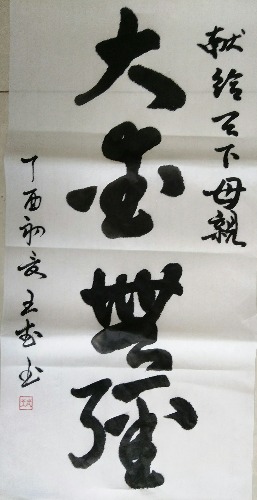 献给天下母親
大爱無疆
丁酉初夏 王